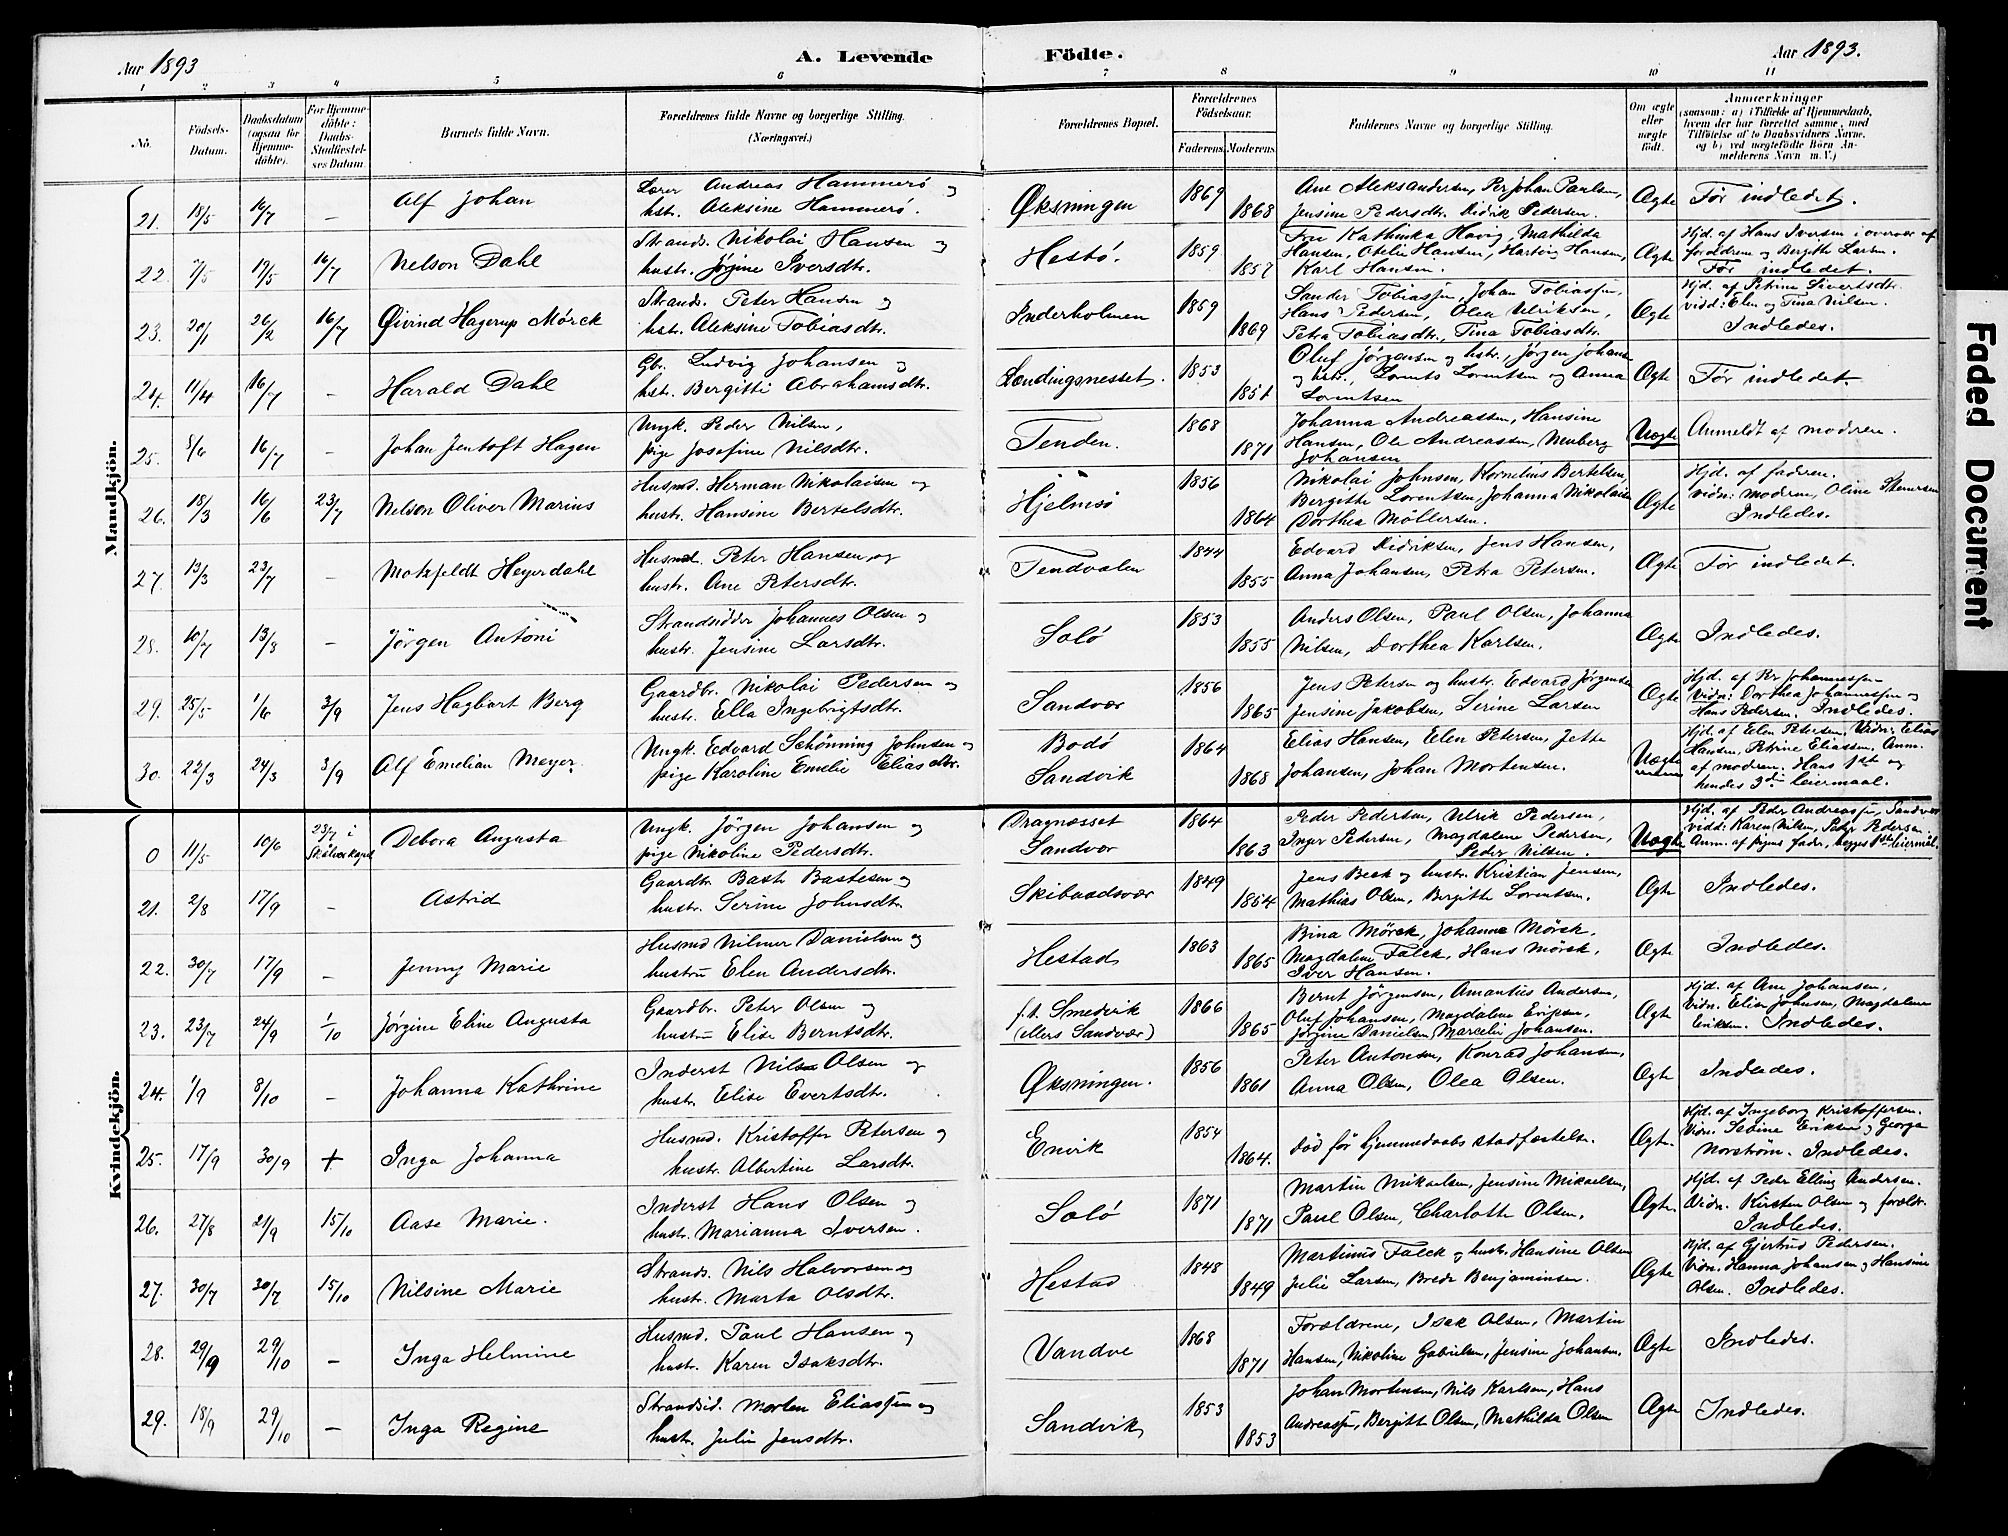 Aar 1893
A. Levende Födte.
Aar 1893.
1 2 3 4 5 6 7 8 9 10 11
No.
Födsels-Datum.
Daabsdatum (ogsaa for Hjemme-döbte).
For Hjemme-döbte: Daabs-Stadfæstel-ses Datum.
Barnets fulde Navn.
Forældrenes fulde Navne og borgerlige Stilling. (Næringsvei.)
Forældrenes Bopæl.
Forældrenes Födselsaar.
Faderens. Moderens.
Faddernes Navne og borgerlige Stilling.
Om ægte eller uægte födt.
Anmærkninger
(saasom: a) i Tilfælde af Hjemmedaab, hvem der har forrettet samme, med Tilföielse af to Daabsvidners Navne, og b) ved uægtefödte Börn An-melderens Navn m. V.)
Mandkjön.
21. 18/5 16/7 – Alf Johan
Lærer Andreas Hammerö og
hstr. Aleksine Hammerö.
Øksningen 1869 1868
Ane Aleksandersen, Per Johan Paulsen,
Jensine Pedersdtr. Didrik Pedersen.
Ægte Før indledet.
22. 7/5 19/5 16/7 Nelson Dahl
Strands. Nikolai Hansen og
hustr. Jørgine Iversdtr.
Hestö. 1859 1857
Fru Kathinka Havig, Mathilda
Hansen, Otelie Hansen, Hartvig Hansen,
Karl Hansen.
Ægte
Hjd. af Hans Iversen i overvær af
forældrene og Bergitte Larsen.
Før indledet.
23. 20/1 26/2 16/7 Øivind Hagerup Mörck
Strands. Peter Hansen og
hst. Aleksine Tobiasdtr.
Inderholmen 1859 1869
Sander Tobiassen, Johan Tobiassen,
Hans Pedersen, Olea Ulriksen,
Petra Tobiasdtr., Tina Tobiasdtr.
Ægte
Hjd. af Petrine Sivertsdtr.
vidd: Elen og Tina Nilsen.
Indledes.
24. 11/4 16/7 – Harald Dahl
Gb. Ludvig Johansen og
hst. Bergitti Abrahamsdtr.
Lændingsnesset. 1853 1851
Oluf Jörgensen og hstr., Jörgen Johans
og hstr., Lorents Lorentsen og Anna
Lorentsen
Ægte Før indledet.
25. 8/6 16/7 – Johan Jentoft Hagen
Ungk. Peder Nilsen,
pige Josefine Nilsdtr.
Tenden. 1868 1871
Johanna Andreassen, Hansine
Hansen, Ole Andreassen, Nenberg
Johansen
Uægte Anmeldt af moderen.
26. 18/3 16/6 23/7 Nelson Oliver Marius
Husmd. Herman Nikolaisen og
hustr. Hansine Bertelsdtr.
Hjelmsö 1856 1864
Nikolai Johnsen, Kornelius Bertelsen
Bergitte Lorentsen, Johanna Nikolaisen
Dorthea Möllersen.
Ægte
Hjd. af faderen.
vidn: moderen, Oline Stenersen
Indledes.
27. 13/3 23/7 – Motzfeldt Heyerdahl
Husmd. Peter Hansen og
hustr. Ane Petersdtr.
Tendvalen 1844 1855
Edvard Didriksen, Jens Hansen,
Anna Johansen, Petra Petersen.
Ægte Før indledet.
28. 10/7 13/8 – Jörgen Antoni
Strandsidder Johannes Olsen og
hustr. Jensine Larsdtr.
Solö 1853 1855
Anders Olsen, Paul Olsen, Johanna
Nilsen, Dorthea Karlsen.
Ægte Indledes.
29. 25/5 1/6 3/9 Jens Hagbart Berg
Gaardbr. Nikolai Pedersen og
hustr. Ella Ingebrigtsdtr.
Sandvær 1856 1865
Jens Petersen og hustr. Edvard Jörgensen
Jensine Jakobsen, Serine Larsen
Ægte
Hjd. af Per Johannessen
Vidn: Dorthea Johannessen og
Hans Pedersen. Indledes.
30. 22/3 24/3 3/9 Alf Emelian Meyer.
Ungk. Edvard Schönning Johnsen og
pige Karoline Emelie Eliasdtr.
Bodö
Sandvik 1864 1868
Elias Hansen, Elen Petersen, Jette
Johansen, Johan Mortensen.
Uægte
Hjd. af Elen Petersen. Vidn: Elias
Hansen, Petrine Eliassen. Anm.
af moderen. Hans 1ste og
hendes 3die leiermaal.
Kvindekjön.
0 11/5 10/6 23/7 i Skålværkapel Debora Augusta
Ungk. Jörgen Johansen og
pige Nikoline Pedersdtr.
Dragnæsset
Sandvær 1864 1863
Peder Pedersen, Ulrik Pedersen,
Inger Pedersen, Magdalene Pedersen,
Peder Nilsen.
Uægte
Hjd. af Peder Andreassen, Sandvær
vidd: Karen Nilsen, Peder Pedersen
Anm. af pigens fader, begges 1ste leiermål.
21. 2/8 17/9 – Astrid
Gaardbr. Basti Bastesen og
hustr. Serine Johnsdtr.
Skibaadsvær 1849 1854
Jens Beck og hustr. Kristian Jensen,
Mathias Olsen, Bergitte Lorentsen.
Ægte Indledes.
22. 30/7 17/9 – Jenny Marie
Husmd Nilmer Danielsen og
hustru Elen Andersdtr.
Hestad 1863 1865
Bina Mörck, Johanne Mörck.
Magdalene Falck, Hans Mörck,
Iver Hansen.
Ægte Indledes.
23. 23/7 24/9 1/10 Jörgine Eline Augusta
Gaardbr. Peter Olsen og
hustru Elise Berntsdtr.
f.t. Smedvik
(ellers Sandvær) 1866 1865
Bernt Jörgensen, Amantus Andersen,
Oluf Johansen, Magdalene Eriksen,
Jörgine Danielsen, Marcelie Johansen.
Ægte
Hjd. af Ane Johansen,
Vidn. Elias Johnsen, Magdalene
Eriksen. Indledes.
24. 1/9 8/10 – Johanna Kathrine
Inderst Nils Olsen og
hustr. Elise Evertsdtr.
Øksningen. 1856 1861
Peter Antonsen, Konrad Johansen,
Anna Olsen, Olea Olsen.
Ægte Indledes.
25. 17/9 30/9 + Inga Johanna
Husmd. Kristoffer Petersen og
hustr. Albertine Larsdtr.
Envik 1854 1864.
Död før hjemmedaabs stadfæstelse.
Ægte.
Hjd. af Ingeborg Kristoffersen.
Vidn. Sebine Eriksen og Georga
Norström. Indledes.
26. 27/8 21/9 15/10 Aase Marie.
Inderst Hans Olsen og
hustr. Marianna Iversen.
Solö 1871 1871
Martin Mikaelsen, Jensine Mikaelsen,
Paul Olsen, Charlotte Olsen.
Ægte.
Hjd. af Peder Elling Andersen.
Vidn. Kirsten Olsen og forældr.
Indledes.
27. 30/7 30/7 15/10 Nilsine Marie
Strands. Nils Halvorsen og
hustr. Marta Olsdtr.
Hestad 1848 1849
Martinus Falck og hustr. Hansine Olsen
Julie Larsen, Brede Benjaminsen.
Ægte
Hjd. af Gjertrud Pedersen.
Vidn. Hanna Johansen og Hansine
Olsen. Indledes.
28. 29/9 29/10 – Inga Helmine
Husmd. Paul Hansen og
hustr. Karen Isaksdtr.
Vandve 1868 1871
Forældrene, Isak Olsen, Martin
Hansen, Nikoline Gabrielsen, Jensine Johansen.
Ægte Indledes.
29. 18/9 29/10 – Inga Regine
Strandsid. Morten Eliassen og
hustr. Julie Jensdtr.
Sandvik 1853 1853
Johan Mortensen, Nils Karlsen, Hans
Andreassen, Bergitte Olsen, Mathilda Olsen
Ægte Indledes.
Faded Document